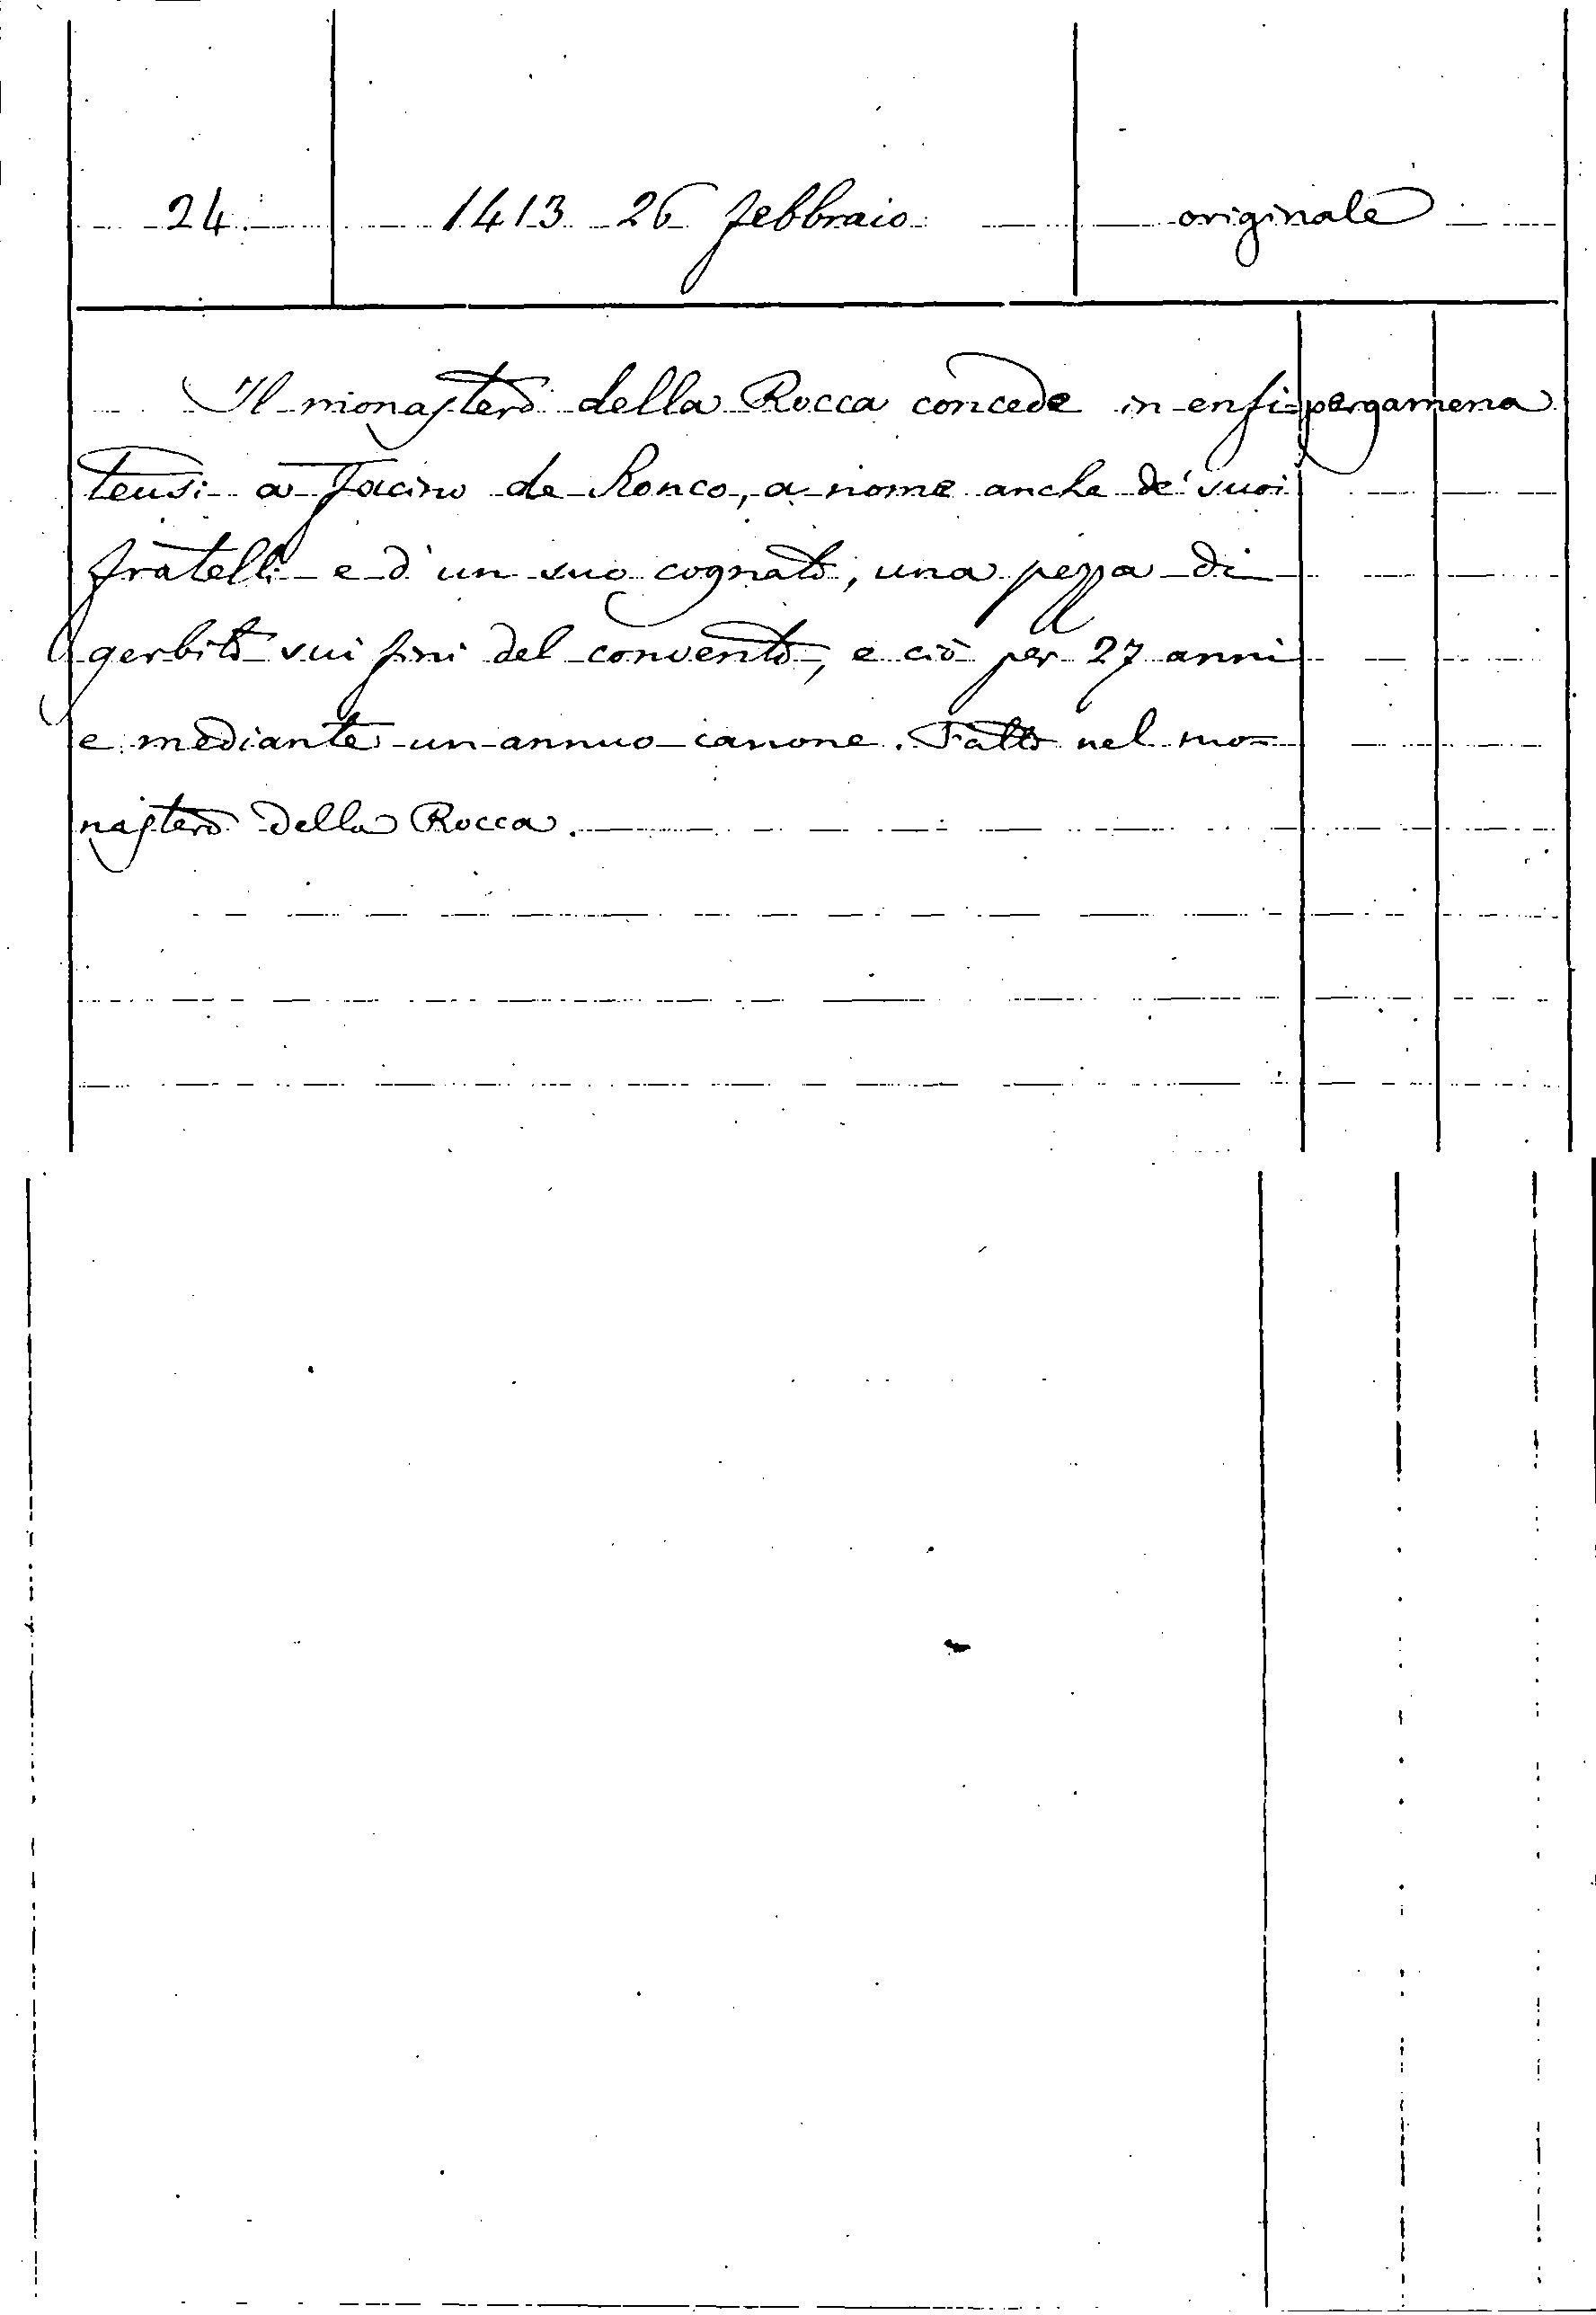 24 1413 26 febbraio originale
Il monastero della Rocca concede in enfi= pergamena
teusi a Facino de Ronco, a nome anche de' suoi
fratelli e d'un suo cognato, una pezza di
gerbito sui fini del convento, e ciò per 27 anni
e mediante un annuo canone. Fatto nel mo=
nastero della Rocca.